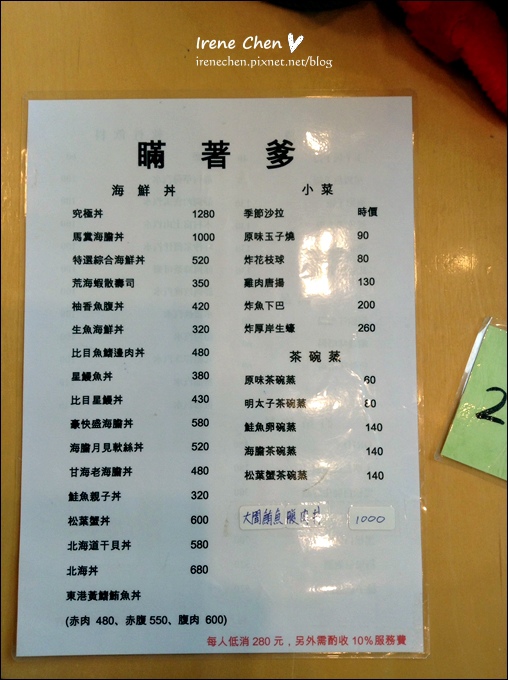 Irene Chen
irenechen.pixnet.net/blog
瞞著爹
海鮮丼
究極丼 1280
馬糞海膽丼 1000
特選綜合海鮮丼 520
荒海蝦散壽司 350
柚香魚腹丼 420
生魚海鮮丼 320
比目魚鰭邊肉丼 480
星鰻魚丼 380
比目星鰻丼 430
豪快盛海膽丼 580
海膽月見軟絲丼 520
甘海老海膽丼 480
鮭魚親子丼 320
松葉蟹丼 600
北海道干貝丼 580
北海丼 680
東港黃鰭鮪魚丼
(赤肉 480、赤腹 550、腹肉 600)
小菜
季節沙拉 時價
原味玉子燒 90
炸花枝球 80
雞肉唐揚 130
炸魚下巴 200
炸厚岸生蠔 260
茶碗蒸
原味茶碗蒸 60
明太子茶碗蒸 80
鮭魚卵碗蒸 140
海膽茶碗蒸 140
松葉蟹茶碗蒸 140
大間鮪魚腹肉丼 1000
每人低消 280 元，另外需酌收 10%服務費
2